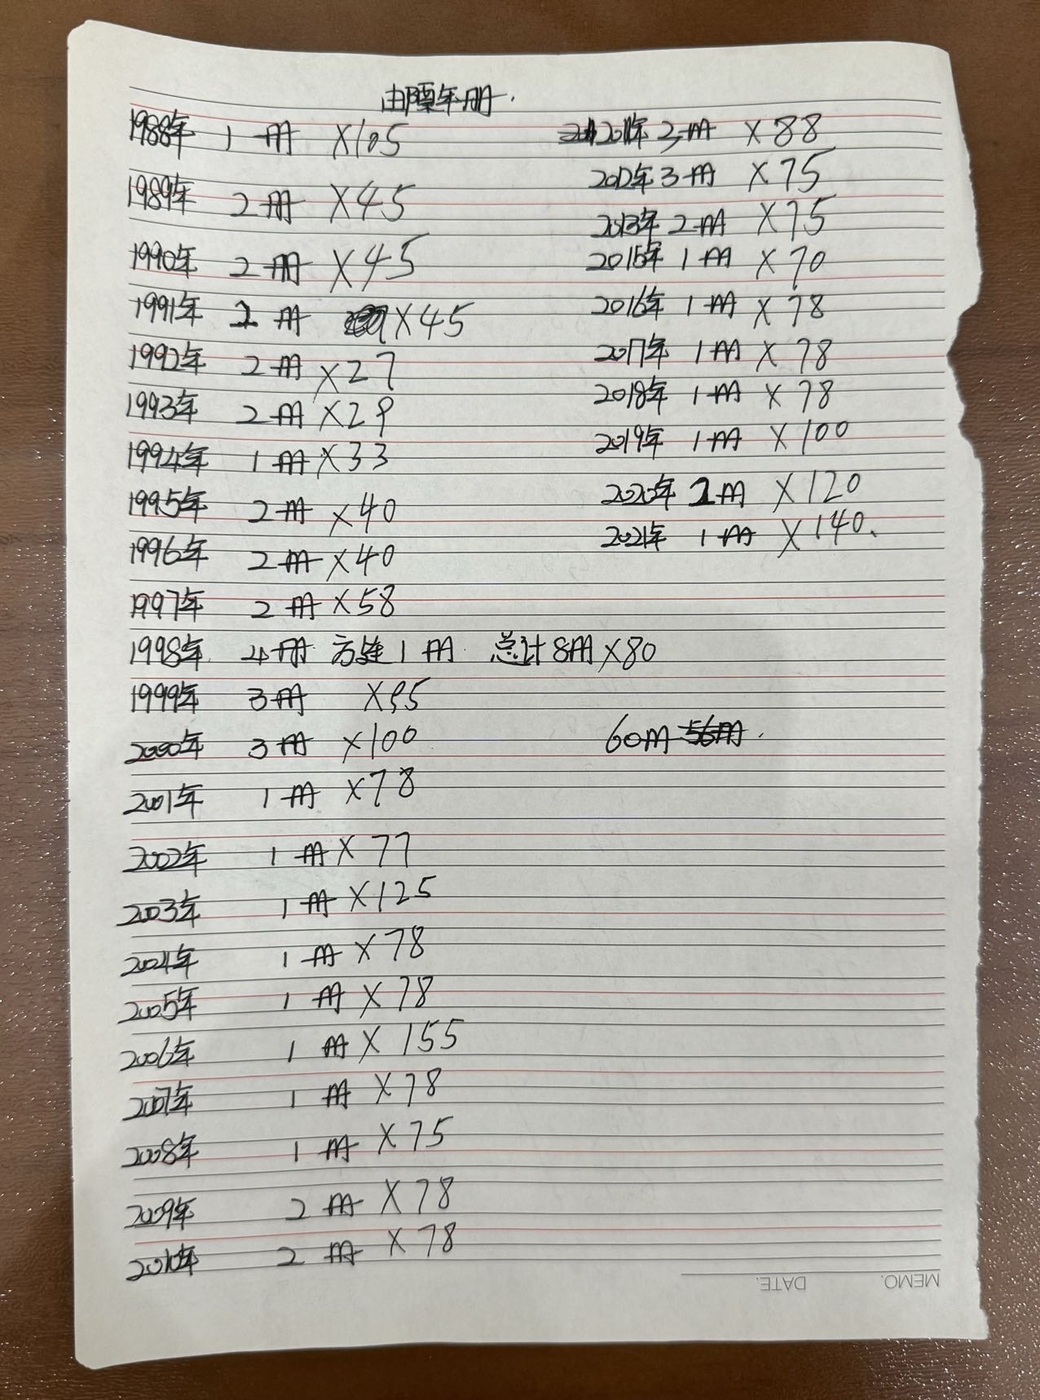 由㮾年册.
1988年 1册 X105
1989年 2册 X45
1990年 2册 X45
1991年 2册 X45
1992年 2册 X27
1993年 2册 X29
1994年 1册 X33
1995年 2册 X40
1996年 2册 X40
1997年 2册 X58
1998年 4册 方连1册 总计8册 X80
1999年 3册 X95
2000年 3册 X100
2001年 1册 X78
2002年 1册 X77
2003年 1册 X125
2004年 1册 X78
2005年 1册 X78
2006年 1册 X155
2007年 1册 X78
2008年 1册 X75
2009年 2册 X78
2010年 2册 X78
2011年 3册 X88
2012年 3册 X75
2013年 2册 X75
2015年 1册 X70
2016年 1册 X78
2017年 1册 X78
2018年 1册 X78
2019年 1册 X100
2020年 2册 X120
2021年 1册 X140.
60册 56册.
MEMO. DATE.